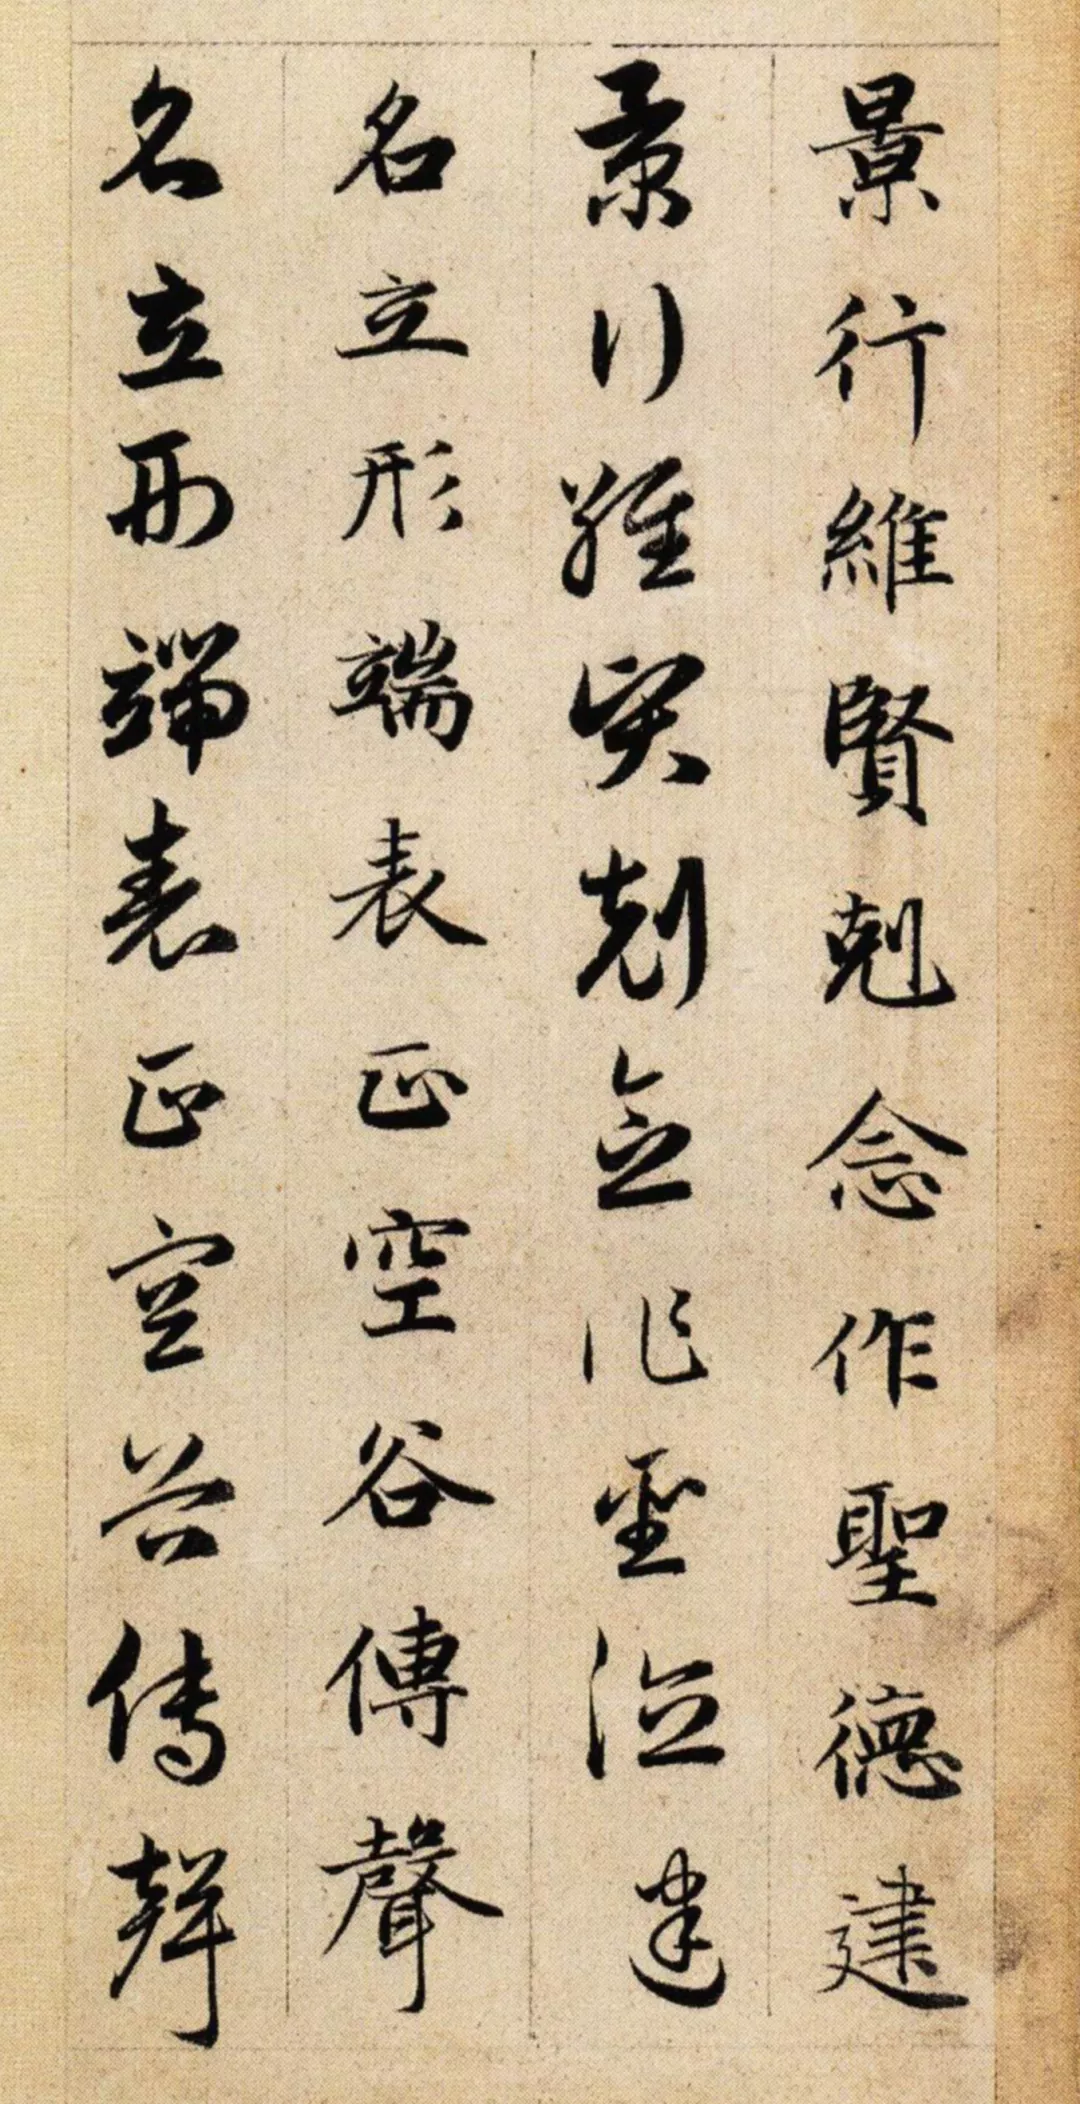 景行維賢剋念作聖德建
景行維賢剋念作聖德建
名立形端表正空谷傳聲
名立形端表正空谷傳聲